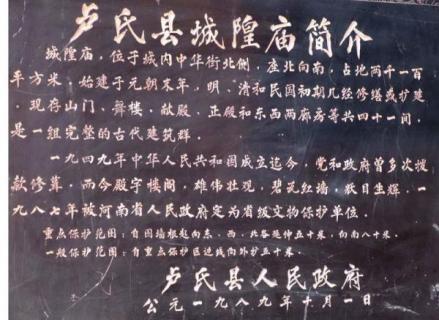 卢氏县城隍庙简介
城隍庙，位于城内中华街北侧，座北向南，占地两千一百
平方米，始建于元朝末年，明、清和民国初期几经修缮或扩建
，现存山门、舞楼、献殿、正殿和东西两廊房等共四十一间，
是一组完整的古代建筑群．
一九四九年中华人民共和国成立迄今，党和政府曾多次拨
款修葺，而今殿宇楼阁，雄伟壮观，碧瓦红墙，耿目生辉．一
九八七年被河南省人民政府定为省级文物保护单位．
重点保护范围：自围墙根起向东、西、北各延伸五十米，向南八十米．
一般保护范围：自重点保护区边线向外扩五十米．
卢氏县人民政府
公元一九八九年十月一日